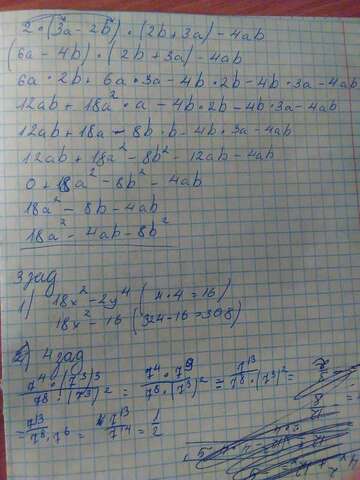 2·(3a-2b)·(2b+3a)-4ab
(6a-4b)·(2b+3a)-4ab
6a·2b+6a·3a-4b·2b-4b·3a-4ab
12ab+18a²·a-4b·2b-4b·3a-4ab
12ab+18a-8b·b-4b·3a-4ab
12ab+18a²-8b²-12ab-4ab
0+18a²-8b²-4ab
18a²-8b-4ab
18a²-4ab-8b²
3 зад
1) 18x²-2y⁴ (4·4=16)
18x²-16 (324-16=308)
2) 4 зад
7⁴·(7³)³/7⁸·(7³)² = 7⁴·7⁹/7⁸·(7³)² = 7¹³/7⁸·(7³)² =
= 7¹³/7⁸·7⁶ = 7¹³/7¹⁴ = 1/2